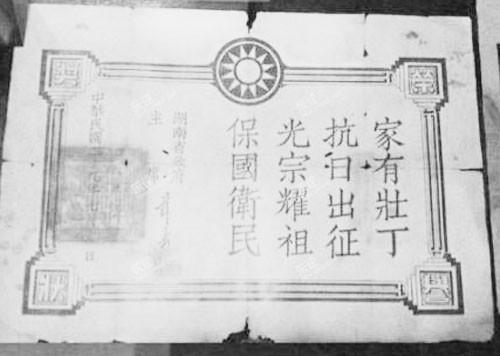 榮
譽
家有壯丁
抗日出征
光宗耀祖
保國衛民
湖南省政府
主
中華民國 日
狀